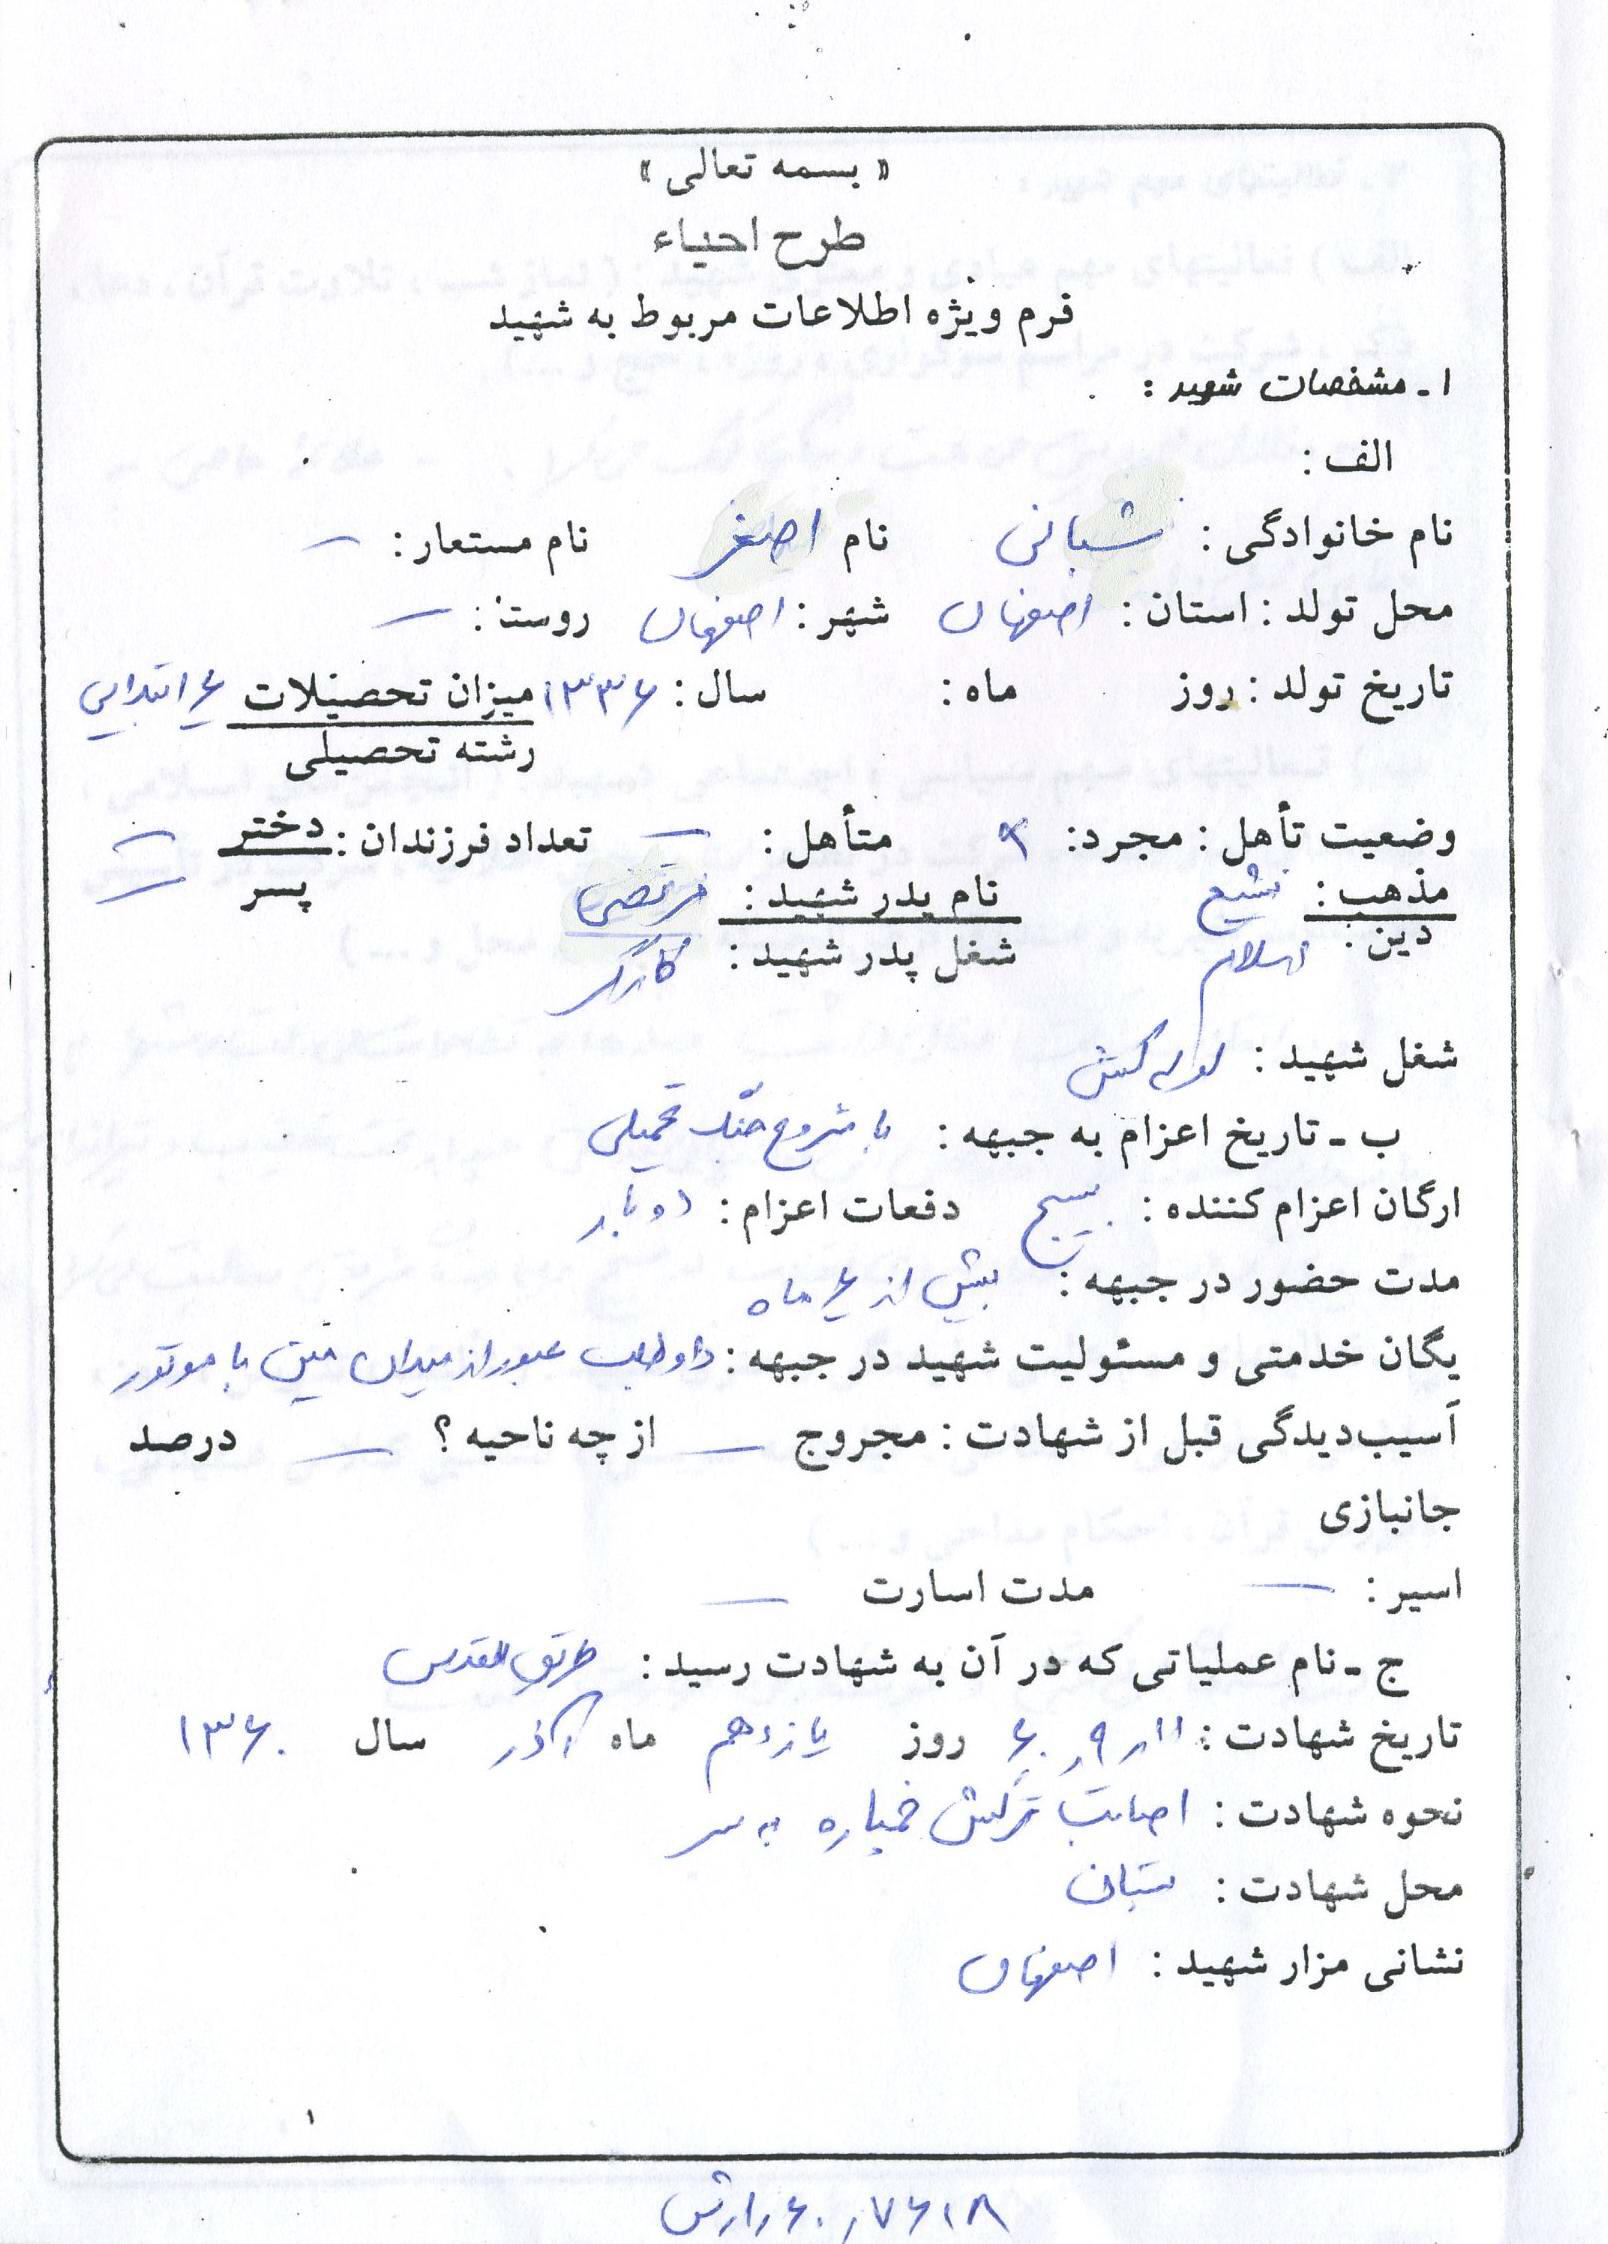 « بسمه تعالی »
طرح احیاء
فرم ویژه اطلاعات مربوط به شهید
۱ـ مشخصات شهید :
الف :
نام خانوادگی : شبانی نام اصغر نام مستعار : –
محل تولد : استان : اصفهان شهر : اصفهان روستا : –
تاریخ تولد : روز ماه : سال : ۱۳۳۶ میزان تحصیلات ۶ ابتدایی
رشته تحصیلی
وضعیت تأهل : مجرد : متأهل : – تعداد فرزندان : دختر –
مذهب : تشیع نام پدر شهید : مرتضی پسر –
دین : اسلام شغل پدر شهید : کارگر
شغل شهید : لوله کش
ب ـ تاریخ اعزام به جبهه : با شروع جنگ تحمیلی
ارگان اعزام کننده : بسیج دفعات اعزام : دوبار
مدت حضور در جبهه : بیش از ۶ ماه
یگان خدمتی و مسئولیت شهید در جبهه : داوطلب عبور از میدان مین با موتور
آسیب‌دیدگی قبل از شهادت : مجروح – از چه ناحیه ؟ – درصد
جانبازی
اسیر : – مدت اسارت –
ج ـ نام عملیاتی که در آن به شهادت رسید : طریق القدس
تاریخ شهادت : ۱۱ر۹ر۶۰ روز یازدهم ماه آذر سال ۱۳۶۰
نحوه شهادت : اصابت ترکش خمپاره به سر
محل شهادت : بستان
نشانی مزار شهید : اصفهان
۱